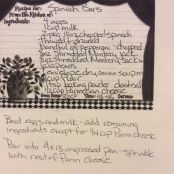 Recipe for: Spinach Bars
From the Kitchen of:
Ingredients: 4 eggs
1 cup milk
2 pkg 10oz chopped spinach
thawed & drained
handful of pepperoni chopped
8oz Shredded Monterey Jack
8oz Shredded Monterey Jack w/
jalapenos
1 envelope dry onion soup mix
1 cup flour
1 tsp baking powder
Beat eggs and milk - add remaining
ingredients except for 1/4 cup Parm cheese
Pour into 9x13 ingreased pan - sprinkle
with rest of Parm cheese